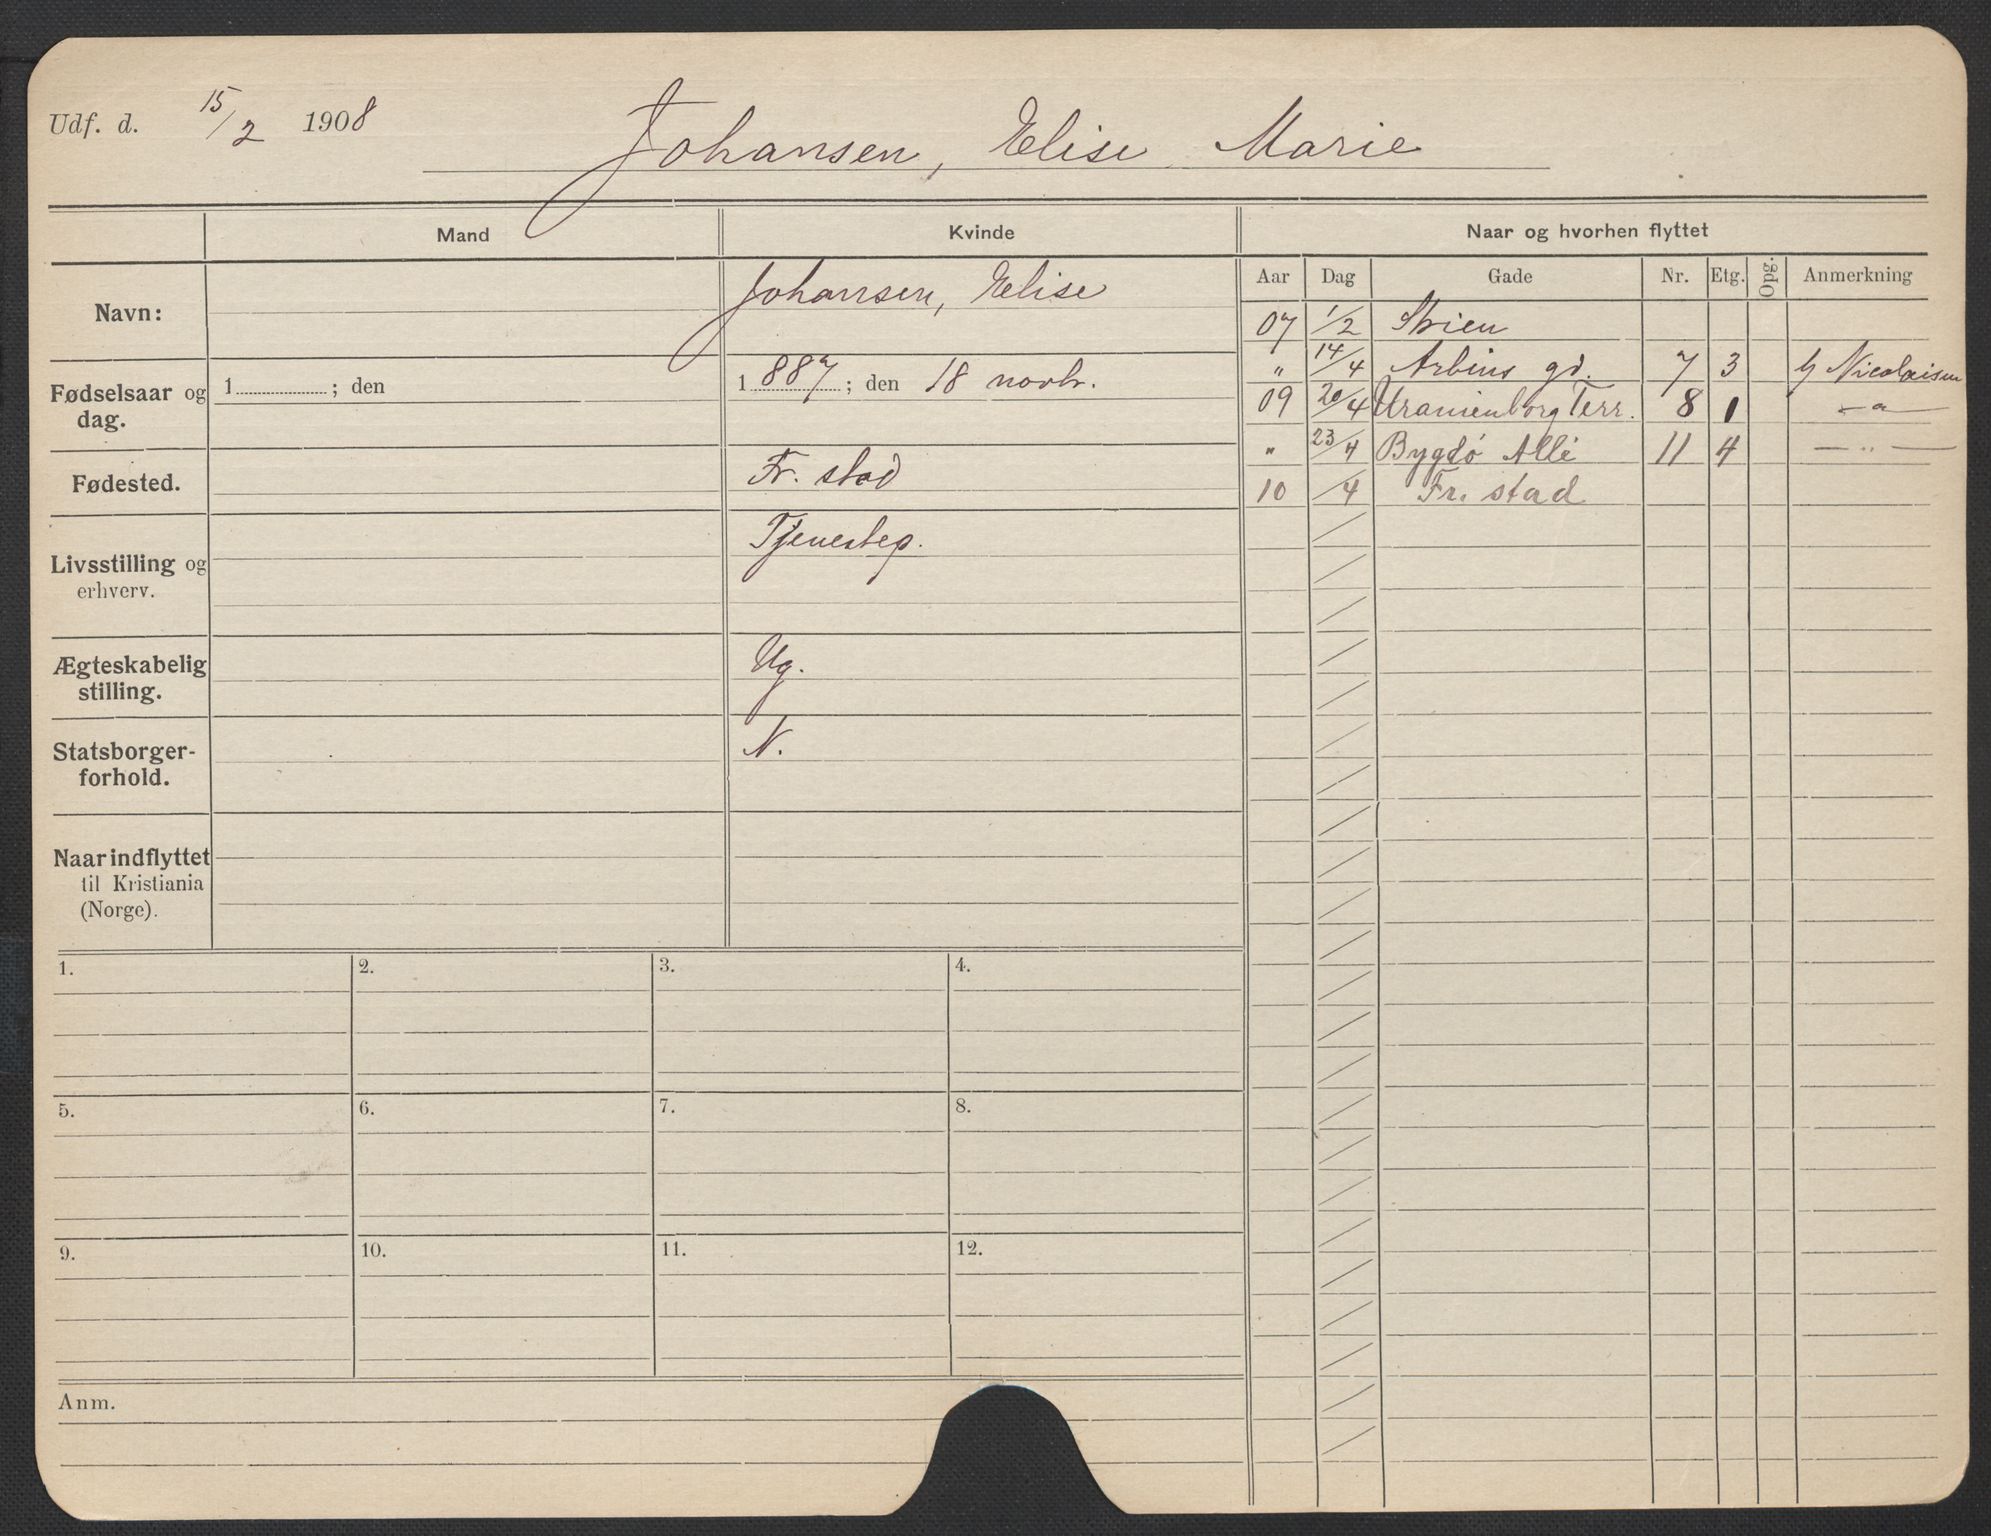 Udf. d. 15/2 1908 Johansen, Elise Marie
Mand Kvinde Naar og hvorhen flyttet
Aar Dag Gade Nr. Etg. Opg. Anmerkning
Navn: Johansen, Elise
Fødselsaar og dag. 1 ; den 1 887 ; den 18 novbr.
Fødested. Fr. stad
Livsstilling og erhverv. Tjenestep.
Ægteskabelig stilling. Ug.
Statsborger-forhold. N.
Naar indflyttet til Kristiania (Norge).
07 1/2 Skien
" 14/4 Arbins gd. 7 3 b/ Nicolaisen
09 20/4 Uranienborg Terr. 8 1 — " —
" 23/4 Bygdø Allé 11 4 — " —
10 /4 Fr. stad
1. 2. 3. 4.
5. 6. 7. 8.
9. 10. 11. 12.
Anm.